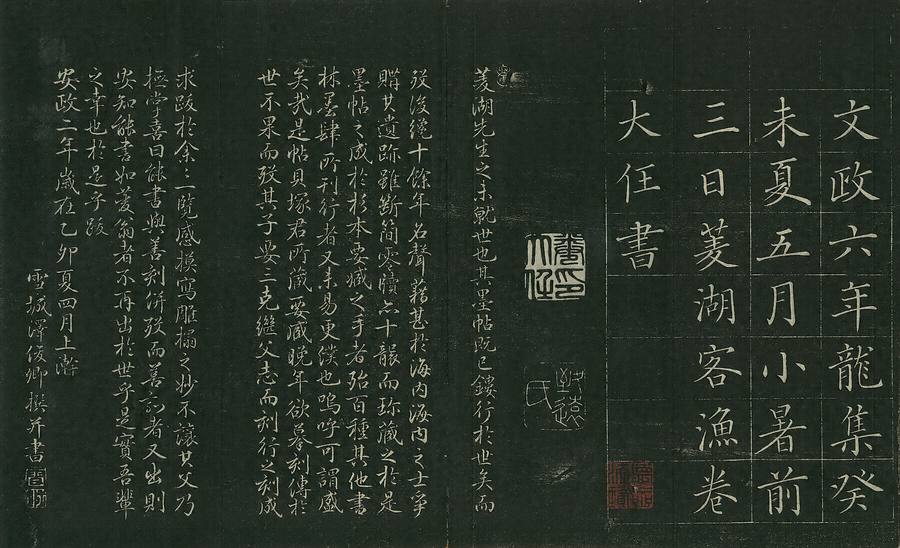 文政六年龍集癸
未夏五月小暑前
三日菱湖客漁卷
大任書
菱湖先生之未就世也其墨帖既已鏤行於世矣而
歿後纔十餘年名聲藉甚於海内海内之士爭
購其遺跡雖斷簡零牘亦十襲而珍藏之於是
墨帖之成於杉本要蔵之手者殆百種其他書
林墨肆所刊行者又未易更僕也嗚呼可謂盛
矣哉是帖貝塚君所蔵要蔵晚年欲摹刻傳於
世不果而歿其子要三克繼父志而刻行之刻成
求跋於余一覧感摸寫雕搨之妙不讓其父乃
撫字喜曰能書與善刻併歿而善刻者又出則
安知能書如菱翁者不再出於世乎是實吾輩
之幸也於是乎跋
安政二年歲在乙卯夏四月上澣
雪城澤俊卿撰并書